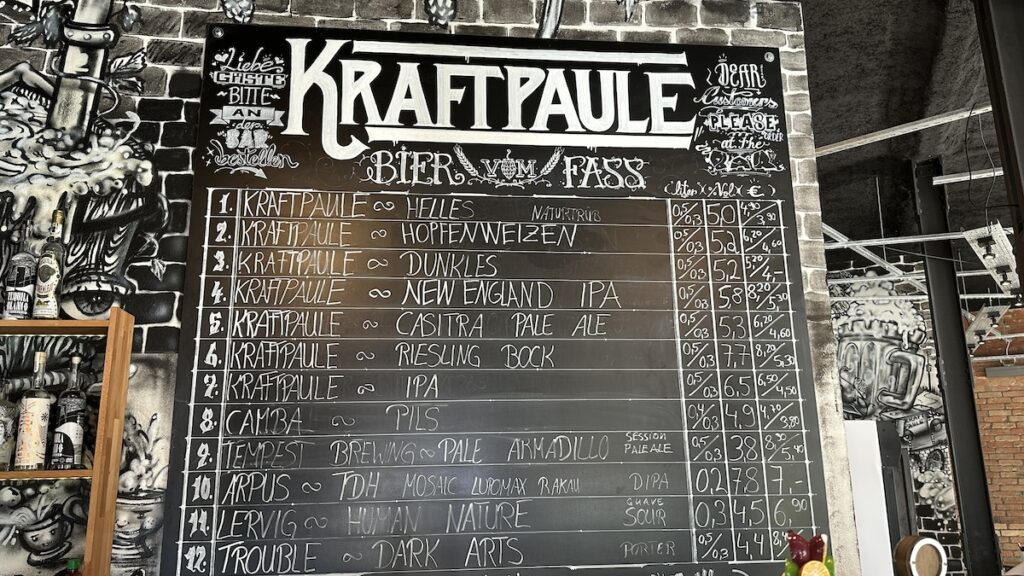 Liebe
GÄSTE
BITTE
AN
der
BAR
bestellen
KRAFTPAULE
DEAR
Customers
PLEASE
order
at the
BAR
BIER VOM FASS
(Liter x %Vol x €)
1. KRAFTPAULE ~ HELLES NATURTRÜB 0,5/0,3 5,0 4,90/3,90
2. KRAFTPAULE ~ HOPFENWEIZEN 0,5/0,3 5,2 6,20/4,60
3. KRAFTPAULE ~ DUNKLES 0,5/0,3 5,2 5,20/4,-
4. KRAFTPAULE ~ NEW ENGLAND IPA 0,5/0,3 5,8 8,20/5,30
5. KRAFTPAULE ~ CASITRA PALE ALE 0,5/0,3 5,3 6,20/4,60
6. KRAFTPAULE ~ RIESLING BOCK 0,5/0,3 7,7 8,20/5,30
7. KRAFTPAULE ~ IPA 0,5/0,3 6,5 6,50/4,50
8. CAMBA ~ PILS 0,4/0,3 4,9 4,20/3,80
9. TEMPEST BREWING ~ PALE ARMADILLO SESSION PALE ALE 0,5/0,3 3,8 8,90/5,90
10. ĀRPUS ~ TDH MOSAIC LUPOMAX RAKAU DIPA 0,2 7,8 7,-
11. LERVIG ~ HUMAN NATURE GUAVE SOUR 0,3 4,5 6,90
12. TROUBLE ~ DARK ARTS PORTER 0,5/0,3 4,4
TEQUILA